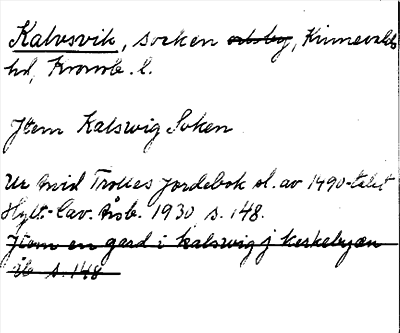 Kalvsvik, socken och by, Kinnevalds
hd, Kronob. l.
Item Kalswig Soken
Ur Arvid Trolles jordebok sl. av 1490-talet
Hylt.-Cav. årsb. 1930 s. 148.
Item en gard i kalswig j kerkebyæn
ib s. 148